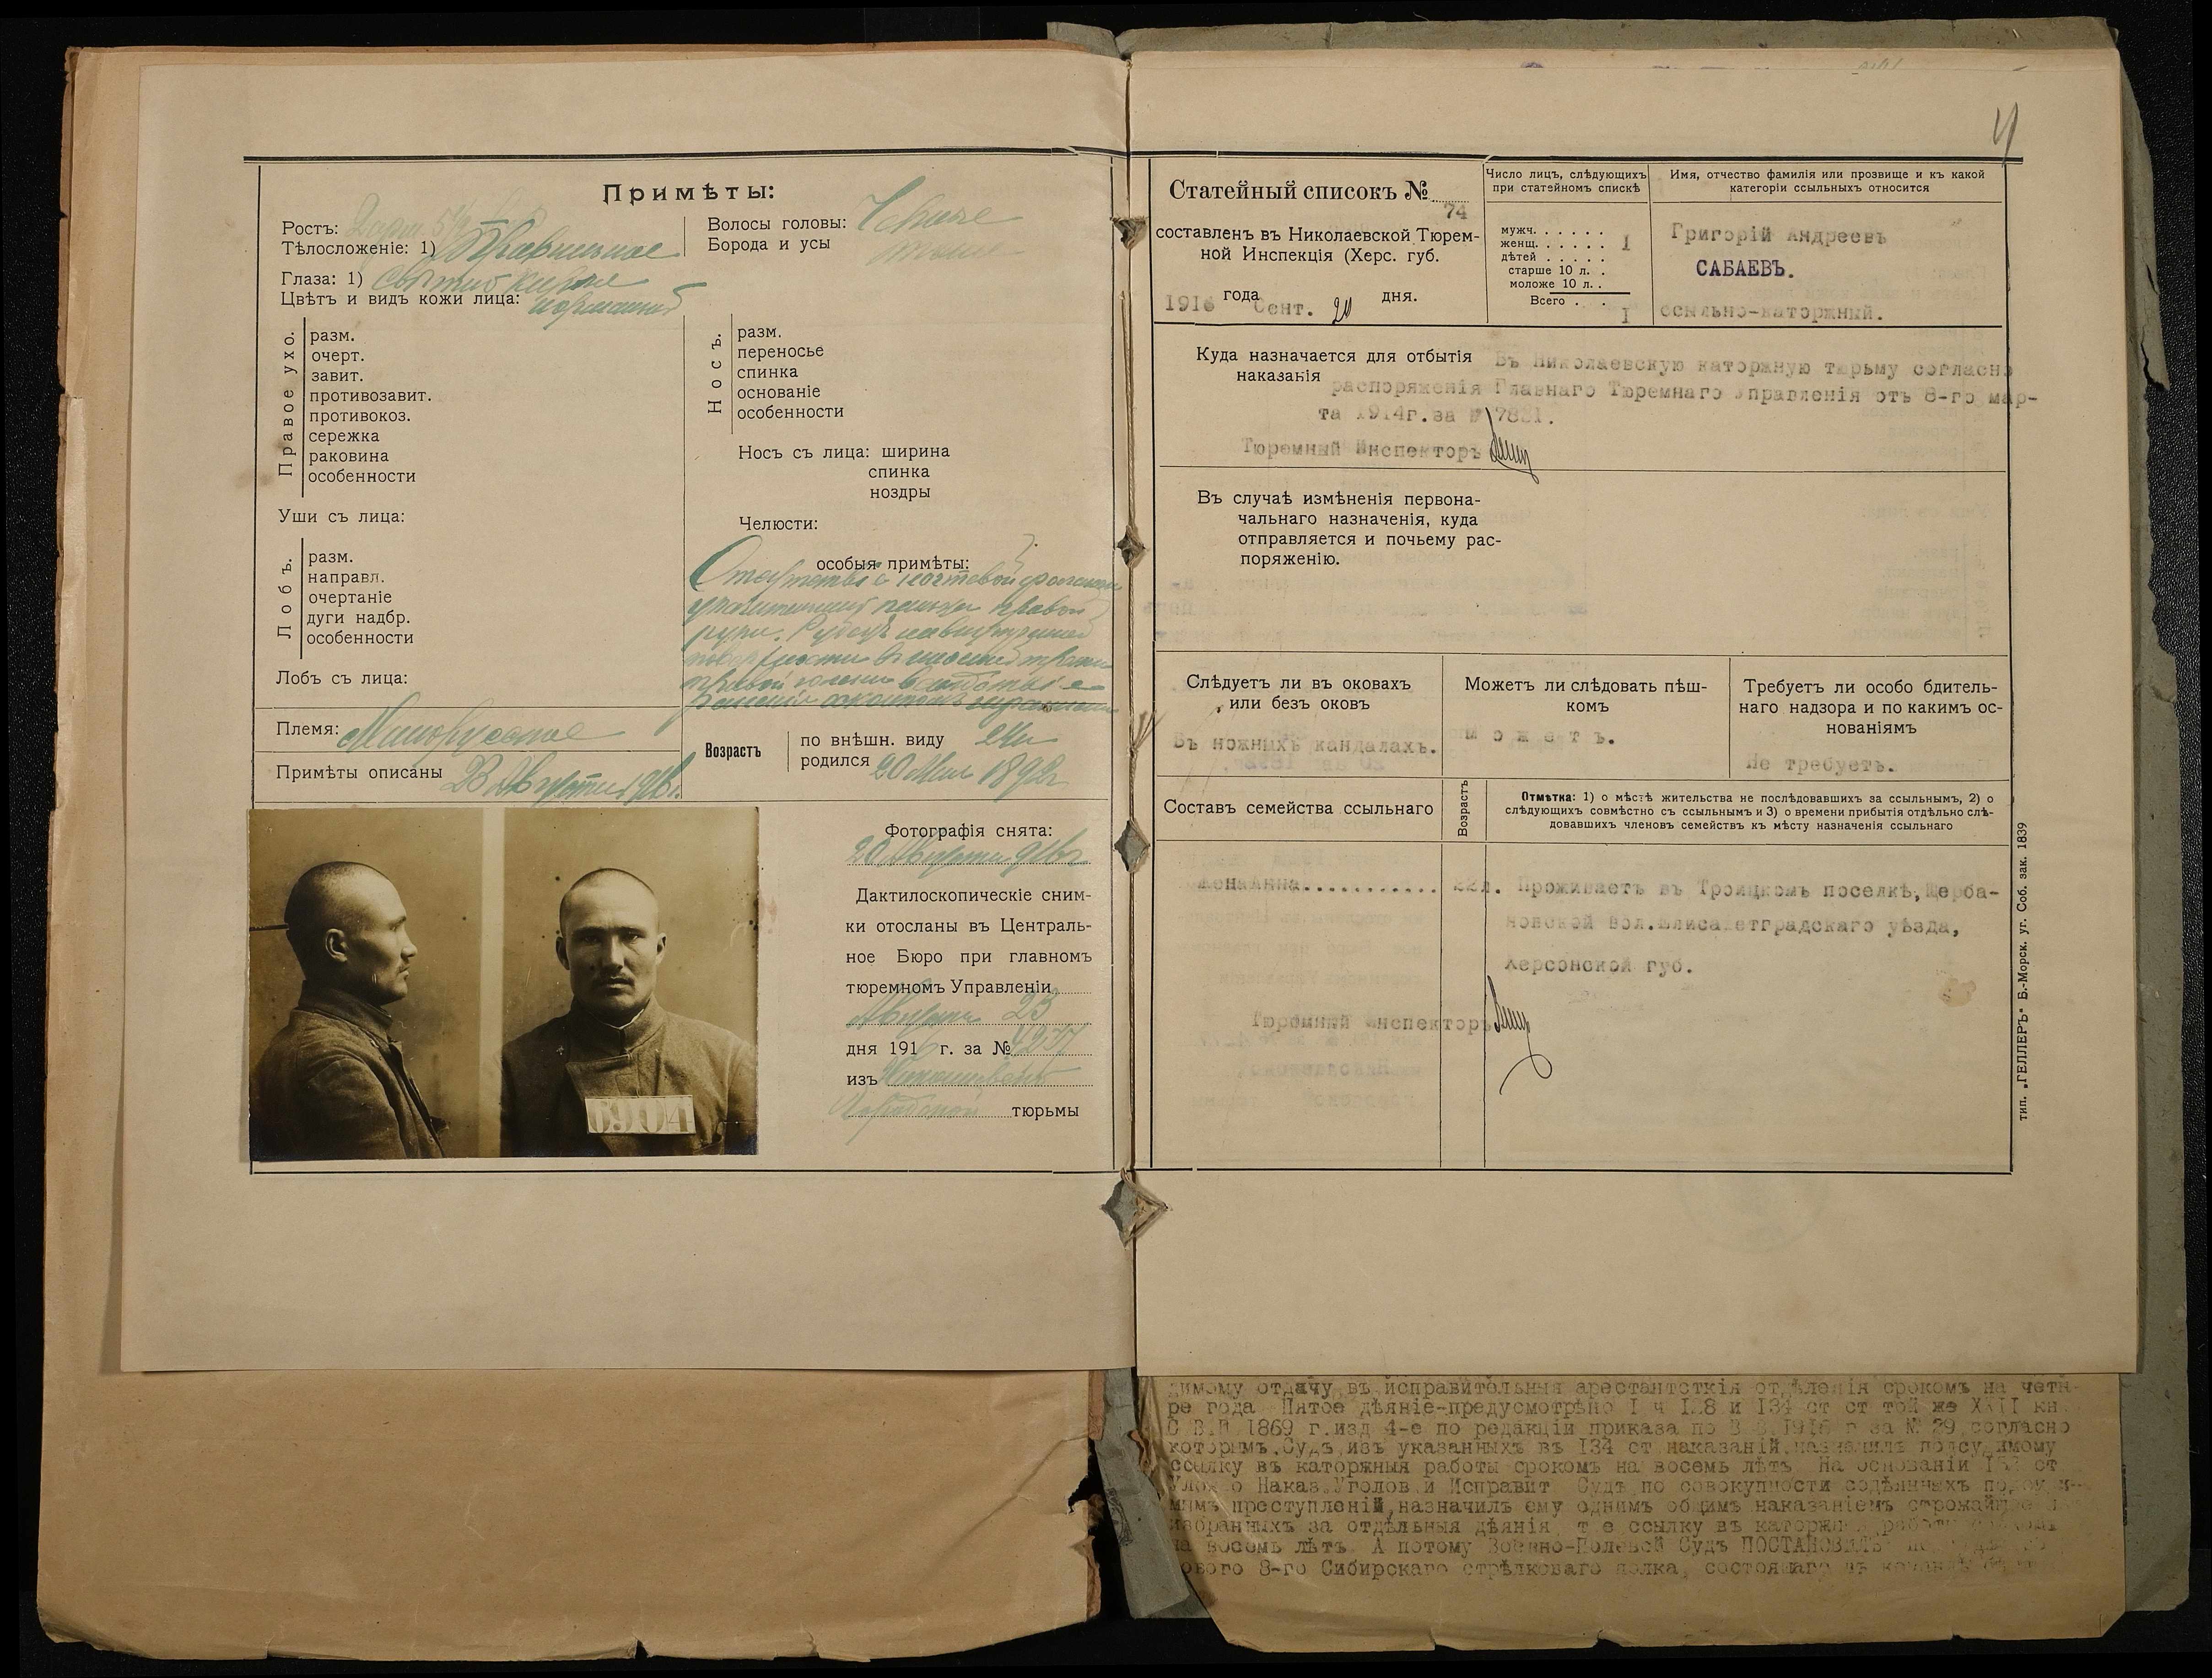 Примѣты:
Ростъ: 2 арш. 5½
Тѣлосложеніе: 1) Правильное
Глаза: 1) свѣтло карие
Цвѣтъ и видъ кожи лица: нормальный
Волосы головы:
Борода и усы тоже
Правое ухо.
разм.
очерт.
завит.
противозавит.
противокоз.
сережка
раковина
особенности
Носъ.
разм.
переносье
спинка
основаніе
особенности
Носъ съ лица: ширина
спинка
ноздры
Уши съ лица:
Челюсти:
Лобъ.
разм.
направл.
очертаніе
дуги надбр.
особенности
Лобъ съ лица:
особыя примѣты:
Отсутствіе ногтевой фаланги
пальца правой
руки. Рубецъ на внутренней
поверхности
правой голени
Племя: Малорусское
Примѣты описаны 23 Августа 1916 г.
Возрастъ
по внѣшн. виду 24
родился 20 1892 г
6904
Фотографія снята:
Августа 916 г
Дактилоскопическіе сним-
ки отосланы въ Централь-
ное Бюро при главномъ
тюремномъ Управленіи
Августа 23
дня 1916 г. за №
изъ
тюрьмы
4
Статейный списокъ №
74
составленъ въ Николаевской Тюрем-
ной Инспекція (Херс. губ.
1916 года Сент. 20 дня.
Число лицъ, слѣдующихъ
при статейномъ спискѣ
мужч. . . . . .
женщ. . . . . . I
дѣтей . . . . .
старше 10 л. . .
моложе 10 л. . .
Всего . . I
Имя, отчество фамилія или прозвище и къ какой
категоріи ссыльныхъ относится
Григорій Андреевъ
САБАЕВЪ.
ссыльно-каторжный.
Куда назначается для отбытія
наказанія
Въ Николаевскую каторжную тюрьму согласно
распоряженія Главнаго Тюремнаго Управленія отъ 8-го мар-
та 1914г. за №
Тюремный Инспекторъ
Въ случаѣ измѣненія первона-
чальнаго назначенія, куда
отправляется и почьему рас-
поряженію.
Слѣдуетъ ли въ оковахъ
или безъ оковъ
Въ ножныхъ кандалахъ.
Можетъ ли слѣдовать пѣш-
комъ
Можетъ.
Требуетъ ли особо бдитель-
наго надзора и по какимъ ос-
нованіямъ
Не требуетъ.
Составъ семейства ссыльнаго
Возрастъ
Отмѣтка: 1) о мѣстѣ жительства не послѣдовавшихъ за ссыльнымъ, 2) о
слѣдующихъ совмѣстно съ ссыльнымъ и 3) о времени прибытія отдѣльно слѣ-
довавшихъ членовъ семействъ къ мѣсту назначенія ссыльнаго
Жена Анна............ 22л. Проживаетъ въ Троицкомъ поселкѣ, Щерба-
новской вол. Елисаветградскаго уѣзда,
Херсонской губ.
Тюремный Инспекторъ
тип. „ГЕЛЛЕРЪ“ Б.-Морск. уг. Соб. зак. 1839
димому отдачу въ исправительныя арестантсткія отдѣленія срокомъ на четы-
ре года Пятое дѣяніе-предусмотрѣно I ч 128 и 134 ст ст той же XXII кн.
С В П 1869 г. изд 4-е по редакціи приказа по В В 1916 г за № 29, согласно
которымъ, Судъ, изъ указанныхъ въ 134 ст наказаній, назначилъ подсудимому
ссылку въ каторжныя работы срокомъ на восемь лѣтъ На основаніи ст
Улож о Наказ. Уголов и Исправит Судъ, по совокупности содѣянныхъ подсуди-
мымъ преступленій, назначилъ ему однимъ общимъ наказаніемъ строжайшее и
избранныхъ за отдѣльныя дѣянія, т е ссылку въ каторжныя работы срокомъ
на восемь лѣтъ. А потому Военно-Полевой Судъ ПОСТАНОВИЛЪ:
8-го Сибирскаго стрѣлковаго полка, состоящаго въ